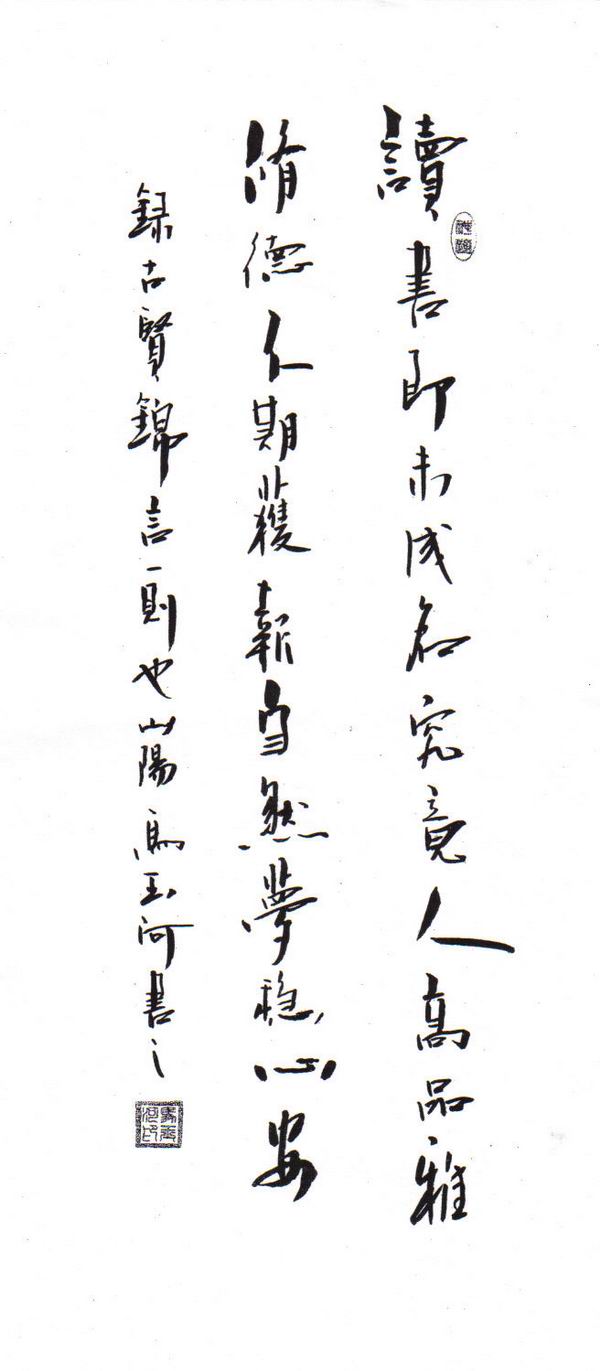 讀書即未成名究竟人高品雅
脩德不期獲報自然夢穩心安
錄古賢錦言一則也山陽馬玉河書之
馬玉河印